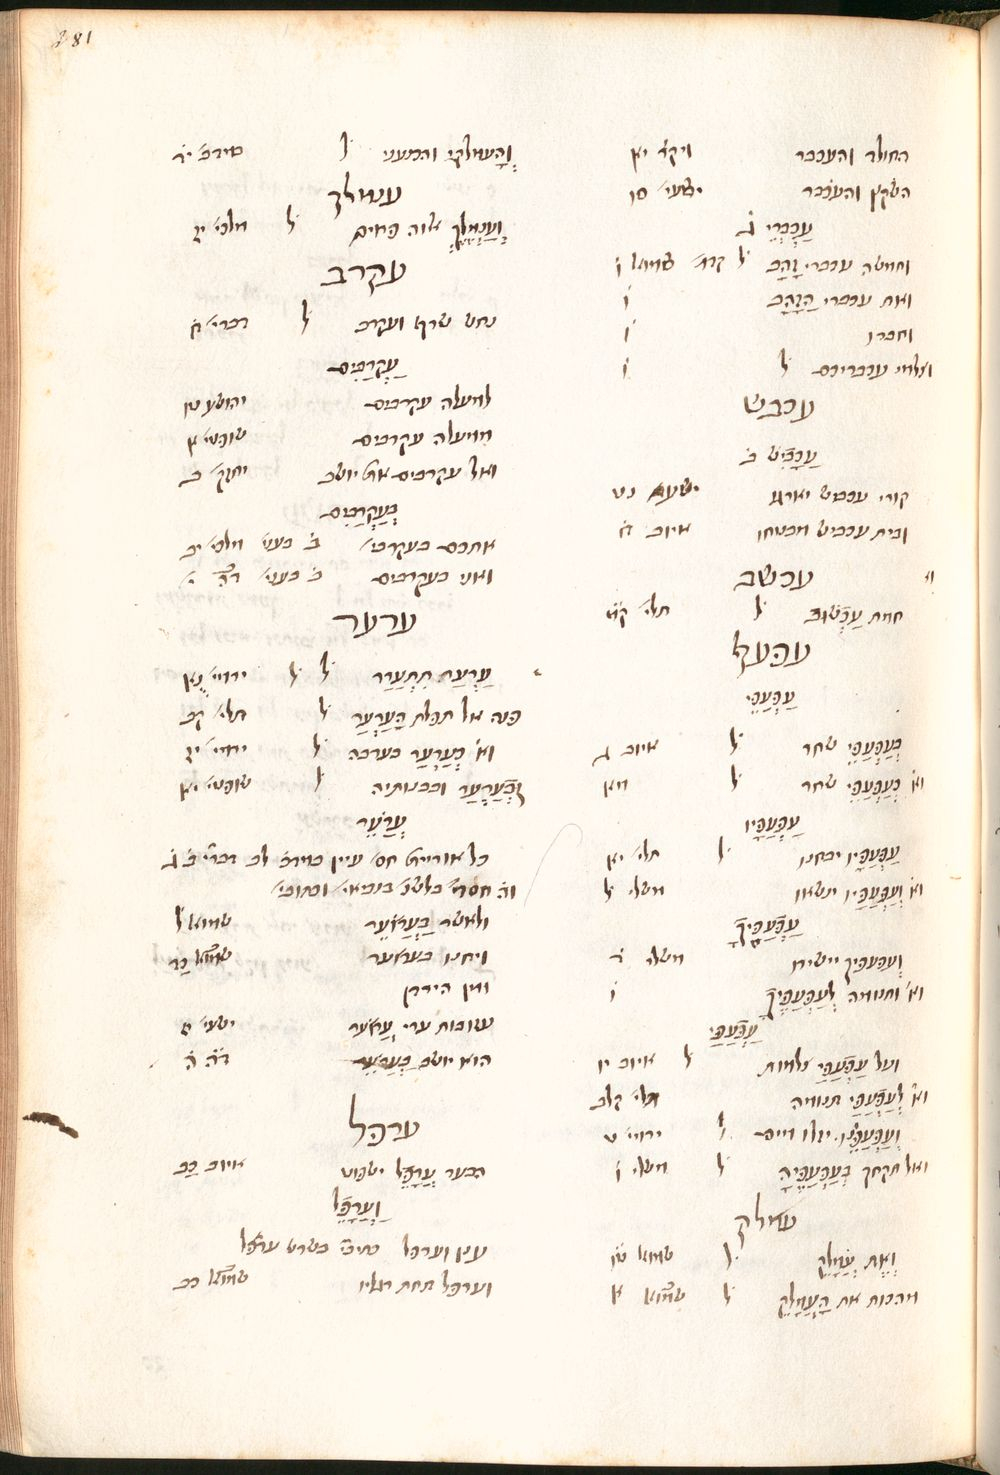 281
החולד והעכבר ויקר׳ יא
השקץ והעכבר ישעי׳ סו
עַכְבְּרֵי ב̇
וחמשה עכברי זָהָב ל̇ קדמ׳ שמוא׳ ו̇
ואת עכברי הַזָּהָב ו̇
וחברו ו̇
וצלמי עכבריכם ל̇ ו̇
עכבש
עַכָּבִישׁ ב̇
קורי עכביש יארגו ישעי׳ נט
ובית עכביש מבטחו איוב ח̇
עכשב
חמת עַכְשׁוּב ל̇ תלי׳ קמ̇
עפעף
עַפְעַפֵּי
בְּעַפְעַפֵּי שחר ל̇ איוב ג
וא׳ כְּעַפְעַפֵּי שחר ל̇ מא
עַפְעַפָּיו
עַפְעַפָּיו יבחנו ל̇ תלי׳ יא
וא׳ וְעַפְעַפָּיו ינשאו משלי ל
עַפְעַפֶּיךָ
ועפעפיך יישירו משלי ד̇
וא׳ ותנומה לְעַפְעַפֶּיךָ ו̇
עַפְעַפַּי
ועל עַפְעַפַּי צלמות ל̇ איוב יו
וא׳ לְעַפְעַפַּי תנומה תלי׳ קלב
וְעַפְעַפֵּינוּ יזלו מים ל̇ ירמי׳ ט
ואל תקחך בְּעַפְעַפֶּיהָ ל̇ משלי ו̇
עמלק
וְאֶת עֲמָלֵק ל̇ שמוא׳ טו
מהכות את הָעֲמָלֵק ל̇ שמוא׳ א
וְהָעֲמָלֵקִי והכנעני ל̇ במדב׳ יד̇
ענמלך
וַעֲנַמֶּלֶךְ אלוה ספרוים ל̇ מלכי׳ יז
עקרב
נחש שרף ועקרב ל̇ דברי׳ ח̇
עַקְרַבִּים
למעלה עקרבים יהושע טו
ממעלה עקרבים שופטי׳ א
ואל עקרבים אתה יושב יחזק׳ ב
בָּעַקְרַבִּים
אתכם בעקרבי׳ ב̇ בעני׳ מלכי׳ יב
ואני בעקרבים ב̇ בעני׳ דה̇ י׳
ערער
עַרְעֵר תִּתְעַרְעָר ל̇ ל̇ ירמי׳ נא
פנה אל תפלת הָעַרְעָר ל̇ תלי׳ קב
וא׳ כְּעַרְעָר בערבה ל̇ ירמי׳ יז
וּבְעַרְעֵר ובבנותיה ל̇ שופטי׳ יא
עֲרֹעֵר
כל אורייתא חס׳ עיין במדב׳ לב דברי׳ ב̇ ג̇
וה̇ חסרי׳ בלשנ׳ בנביאי׳ וכתובי׳
ולאשר בַּעֲרֹעֵר שמוא׳ ל̇
ויחנו בערוער שמוא׳ כד
ומן הירדן
עזובות ערי עֲרֹעֵר ישעי׳ יז
הוא יושב בַּעֲרֹעֵר דה̇ ה̇
ערפל
הבעד עֲרָפֶל ישפוט איוב כב
וַעֲרָפֶל
ענן וערפל כתיב׳ בשרש ערפל
וערפל תחת רגליו שמוא׳ כב